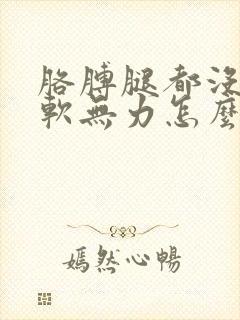 胳膊腿都沒
軟無力怎麼
嫣然心暢